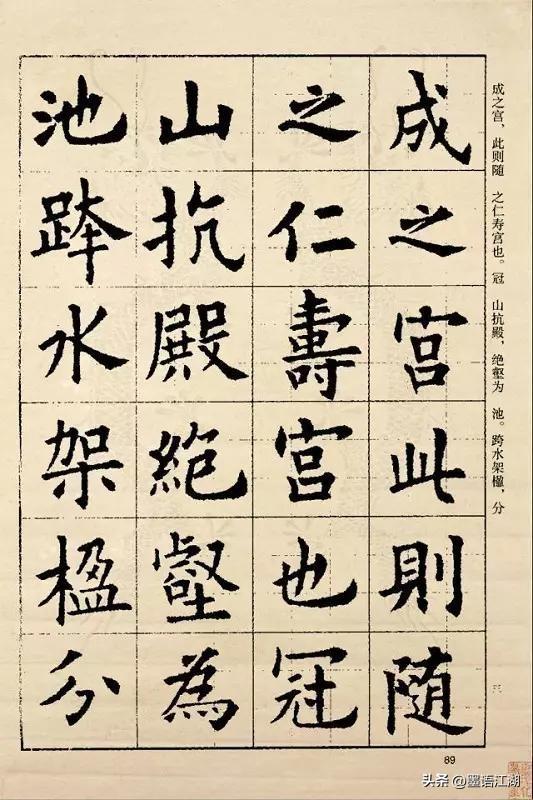 成之宫此則随
之仁壽宫也冠
山抗殿絶壑為
池跨水架楹分
成之宫，此则随 之仁寿宫也。冠 山抗殿，绝壑为 池。跨水架楹，分
三
89
头条 @墨语江湖